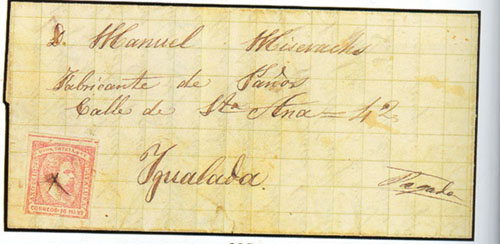 D. Manuel Miserachs
Fabricante de Paños
Calle de Sta Ana = 42
Igualada.
Pagado